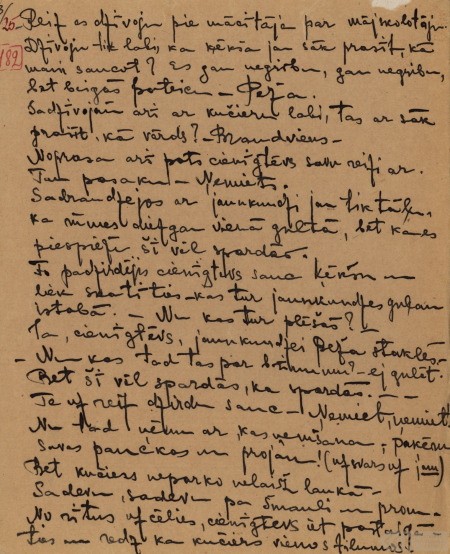 3/
25
182
Reiz es dzīvoju pie mācītāja par mājskolotāju.
Dzīvoju tik labi, ka ķēkša jau sāk prasīt, kā
mani sauc? Es gan negribu, gan negribu,
bet beigās pateicu – Peža.
Sadzīvojām arī ar kučieru labi, tas ar sāk
prasīt, kā vārds? – Brandviens –
Noprasa arī pats cienīgtēvs savu reizi ar.
Tam pasaku – Ņemiets.
ar jaunkundzi jau tiktālu,
ka mēs diezgan vienā gultā, bet kā es
piespiežu šī vēl spārdās.
To padzirdējis cienīgtēvs sauc ķēkšu un
liek skatīties – kas tur jaunkundzes guļam
istabā. – Nu kas tur plēšās? –
Tā, cienīgtēvs, jaunkundzei Peža
– Nu kas tad tas par brīnumu? – ej gulēt.
Bet šī vēl spārdās, ka spārdās. –
Te uz reiz dzirdu sauc – Ņemiet, ņemiet!
Nu tad ņēmu ar, kas ņemšana, pakēru
savas pančkas un projām! (uzsvars uz jam)
Bet kučiers neparko nelaiž laukā –
Sadevu, sadevu pa šmauli un prom –
No rītus uzcēlies, cienīgtēvs iet
ties un redz ka kučiers vienos zilumos!